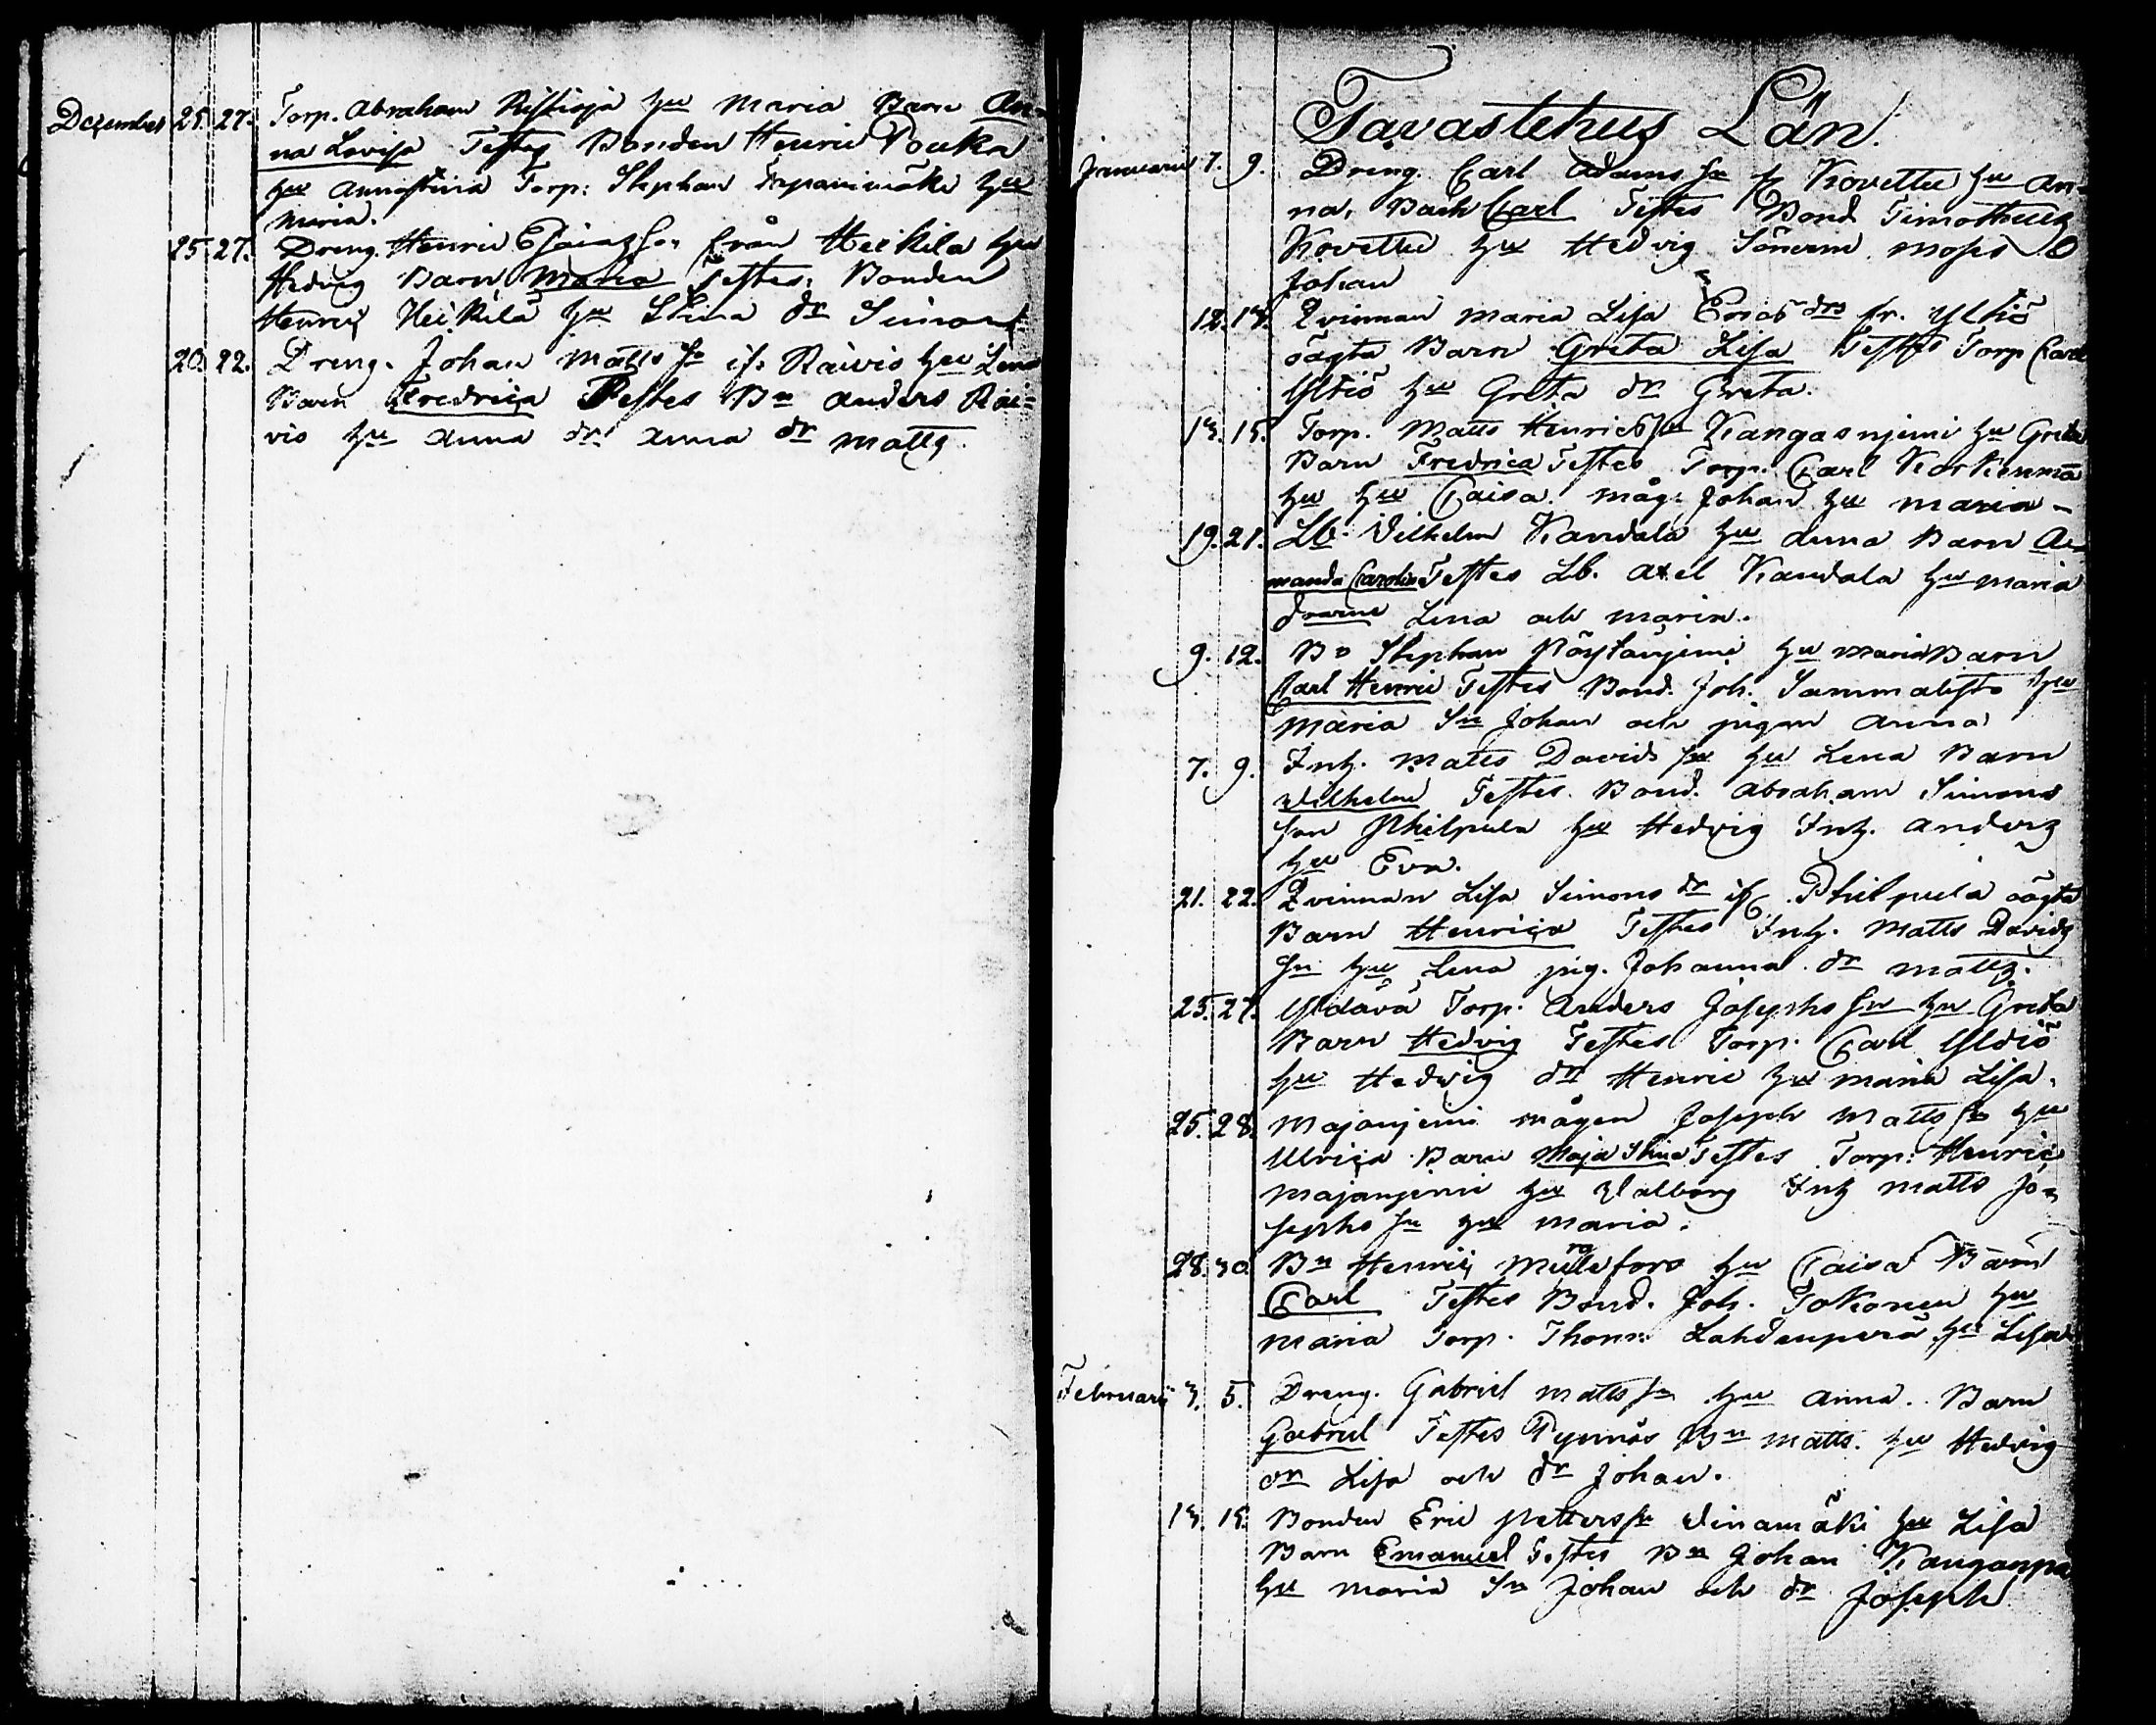 Dezember 25. 27. Torp. Abraham Ristioja hu Maria Barn An-
na Lovisa Testes Bonden Henric Pouka
hu Annastina Torp: Stephan Tapanimäki hu
Maria.
25 27. Dreng. Henric Esaiæ So. från Heikila hu
Hedvig Barn Maria Testes: Bonden
Henric Heikilä hu Stina dr Simon
20. 22. Dreng. Johan Matts So if. Räivis hu Lena
Barn Fredrica Testes Bn Anders Räi-
vis hu Anna dr Anna dr Matts.
Tavastehus Län.
Januarii 7. 9. Dreng. Carl Adams Sn Kovettu hu An-
na, Barn Carl Testes Bond Timotheus
Kovettu hu Hedvig Sönerne Moses o
Johan
12. 14. Qvinnan Maria Lisa Erics drs fr. Yltiö
oägta Barn Greta Lisa Testes Torp Carl
Yltiö hu Greta dr Greta.
13. 15. Torp. Matts Henrics Sn Kangasnjemi hu Greta
Barn Fredrica Testes Torp. Carl
hu hu Caisa. måg: Johan hu Maria -
19. 21. Lb. Vilhelm Kandala hu Anna Barn A-
manda Carolin Testes Lb. Axel Kandala hu Maria
drarne Lena och Maria.
9. 12. Bo Stephan Pöytänjemi hu Maria Barn
Carl Henric Testes Bond. Joh. Sammalisto hu
Maria Sn Johan och pigan Anna
7. 9. Inh. Matts Davids Sn hu Lena Barn
Wilhelm Testes. Bond. Abraham Simons
son Philpula hu Hedvig Inh. Anders
hu Eva.
21. 22. Qvinnan Lisa Simons dr if Philpula oägta
Barn Henrica Testes Inh. Matts Davids
Sn hu Lena pig. Johanna dr Matts.
25. 27. Torp. Anders Josephs Sn hu Greta
Barn Hedvig Testes Torp. Carl Yldiö
hu Hedvig dr Henric hu Maria Lisa.
25. 28. Majanjemi mågen Joseph Matts So hu
Ulrica Barn Maja Stina Testes Torp: Henric
Majanjemi hu Valborg Inh Matts Jo-
sephs Sn hu Maria.
28. 30. Bn Henric hu Caisa Barn
Carl Testes Bond. Joh. Tokonen hu
Maria Torp. Thom: Lahdenperä hu Lisa
Februarii 3. 5. Dreng. Gabriel Matts Sn hu Anna. Barn
Gabriel Testes Bn Matts. hu Hedvig
dr Lisa och dr Johan.
13. 15. Bonden Eric Petters Sn Vinamäki hu Lisa
Barn Emanuel Testes Bn Johan Kauganpä
hu Maria Sn Johan och dr Joseph